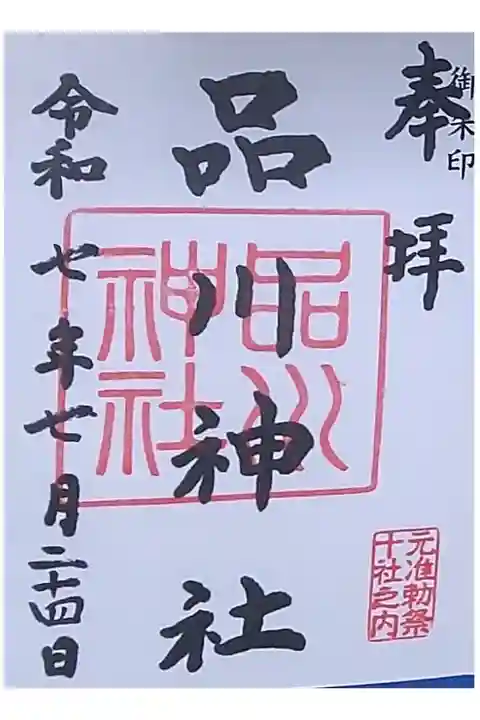 御朱印
奉拝
品川神社
令和七年七月二十四日
品川
神社
元准勅祭
十社之内